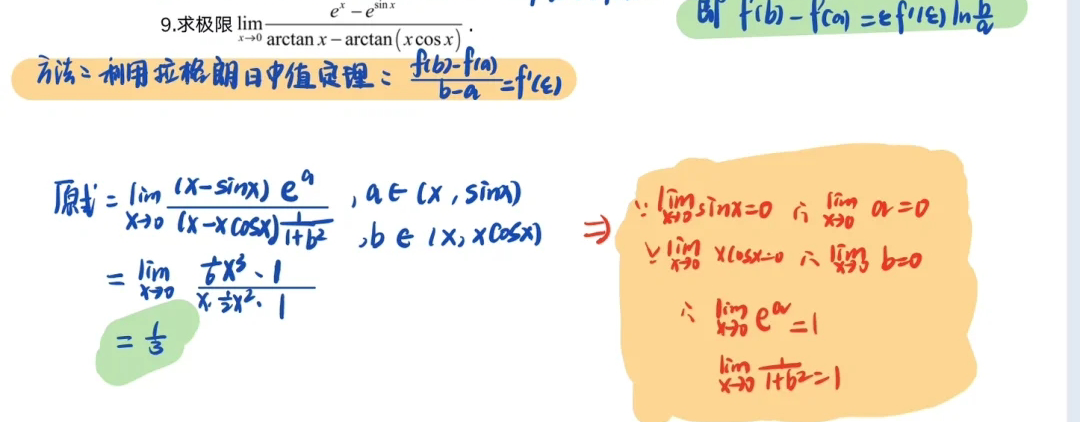 即 f(b)-f(a)=ξf'(ξ)ln b/a
9.求极限 lim x→0 (e^x - e^{sin x})/(arctan x - arctan(x cos x)).
方法二 利用拉格朗日中值定理: (f(b)-f(a))/(b-a)=f'(ξ)
原式 = lim x→0 ((x-sinx) e^a)/((x-xcosx) 1/(1+b²)) , a∈(x, sina) , b∈(x, xcosx)
= lim x→0 (1/6 x³·1)/(x·1/2 x²·1)
= 1/3
⇒ ∵ lim x→0 sinx=0 ∴ lim x→0 a=0
∵ lim x→0 xcosx=0 ∴ lim x→0 b=0
∴ lim x→0 e^a=1
lim x→0 1/(1+b²)=1